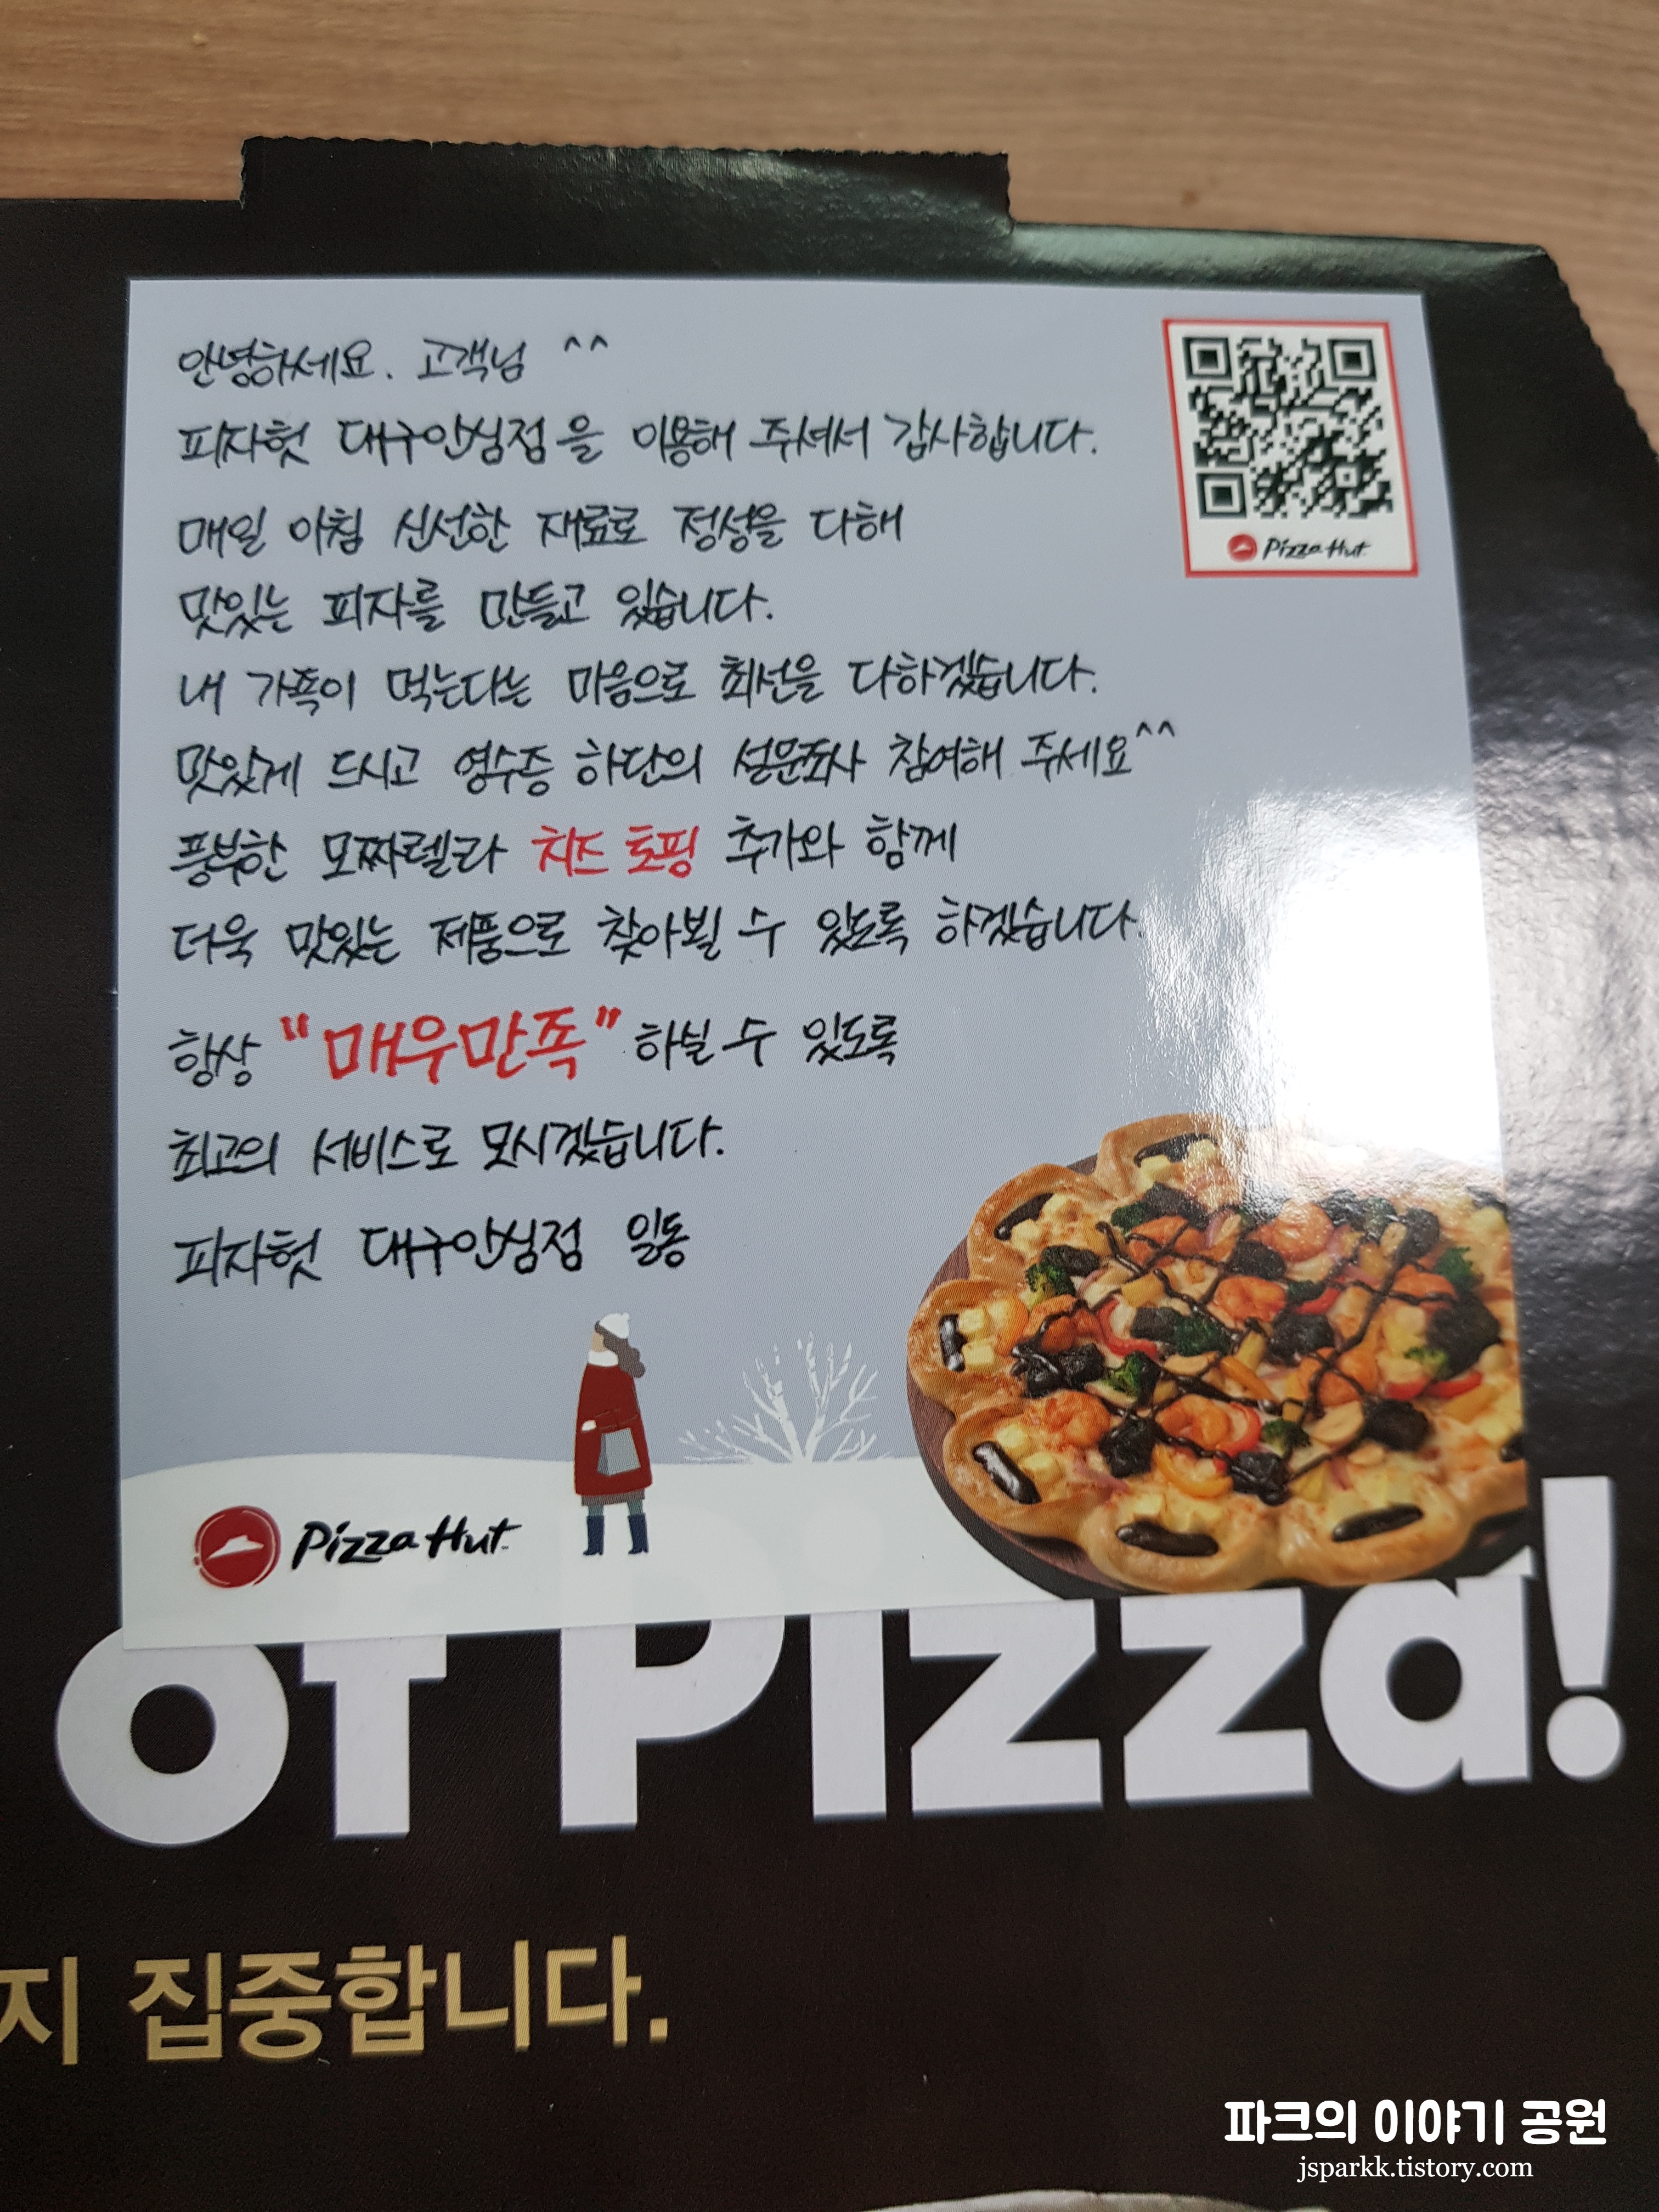 안녕하세요. 고객님 ^^
피자헛 대구안심점을 이용해 주셔서 감사합니다.
매일 아침 신선한 재료로 정성을 다해
맛있는 피자를 만들고 있습니다.
내 가족이 먹는다는 마음으로 최선을 다하겠습니다.
맛있게 드시고 영수증 하단의 설문조사 참여해 주세요^^
풍부한 모짜렐라 치즈 토핑 추가와 함께
더욱 맛있는 제품으로 찾아뵐 수 있도록 하겠습니다.
항상 "매우만족" 하실 수 있도록
최고의 서비스로 모시겠습니다.
피자헛 대구안심점 일동
Pizza Hut
Pizza Hut
of Pizza!
지 집중합니다.
파크의 이야기 공원
jsparkk.tistory.com